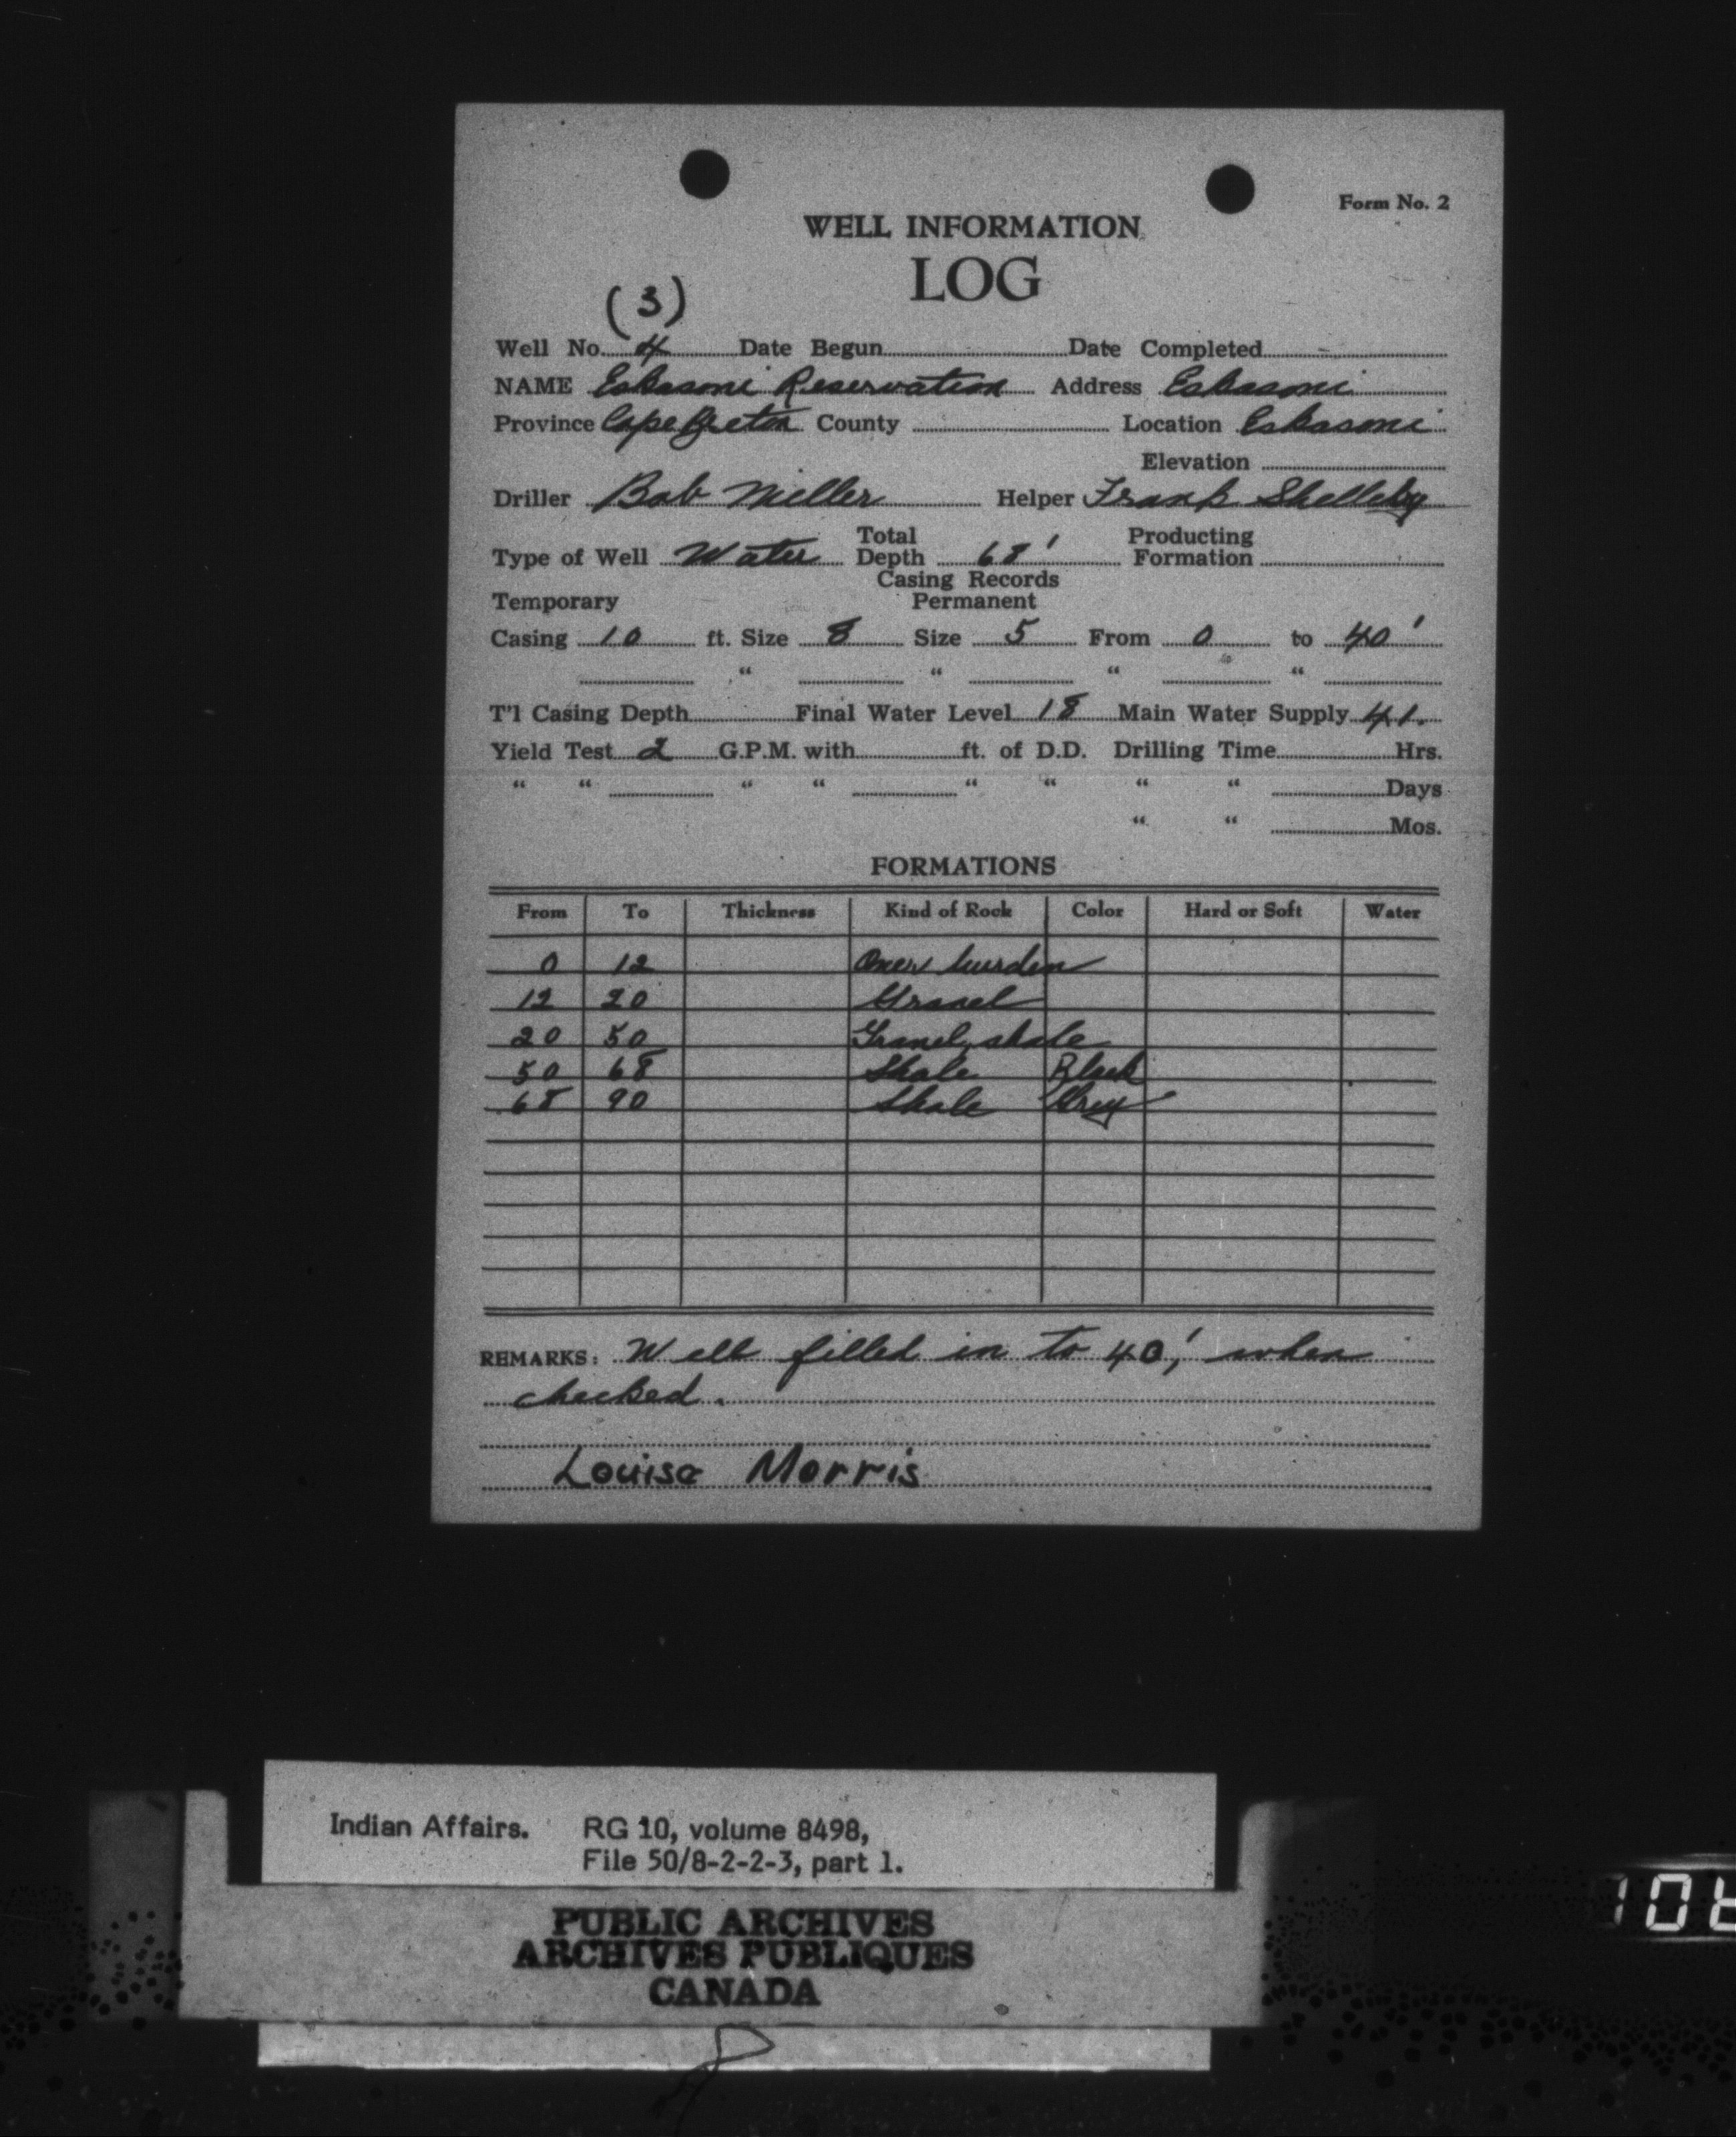 Form No. 2
WELL INFORMATION
LOG
(3)
Well No. 4 Date Begun Date Completed
NAME Eskasoni Reservation Address Eskasoni
Province Cape Breton County Location Eskasoni
Elevation
Driller Bob Miller Helper Frank
Total Producting
Type of Well Water Depth 68' Formation
Casing Records
Temporary Permanent
Casing 10 ft. Size 8 Size 5 From 0 to 40'
" " " "
T'l Casing Depth Final Water Level 18 Main Water Supply 41.
Yield Test 2 G.P.M. with ft. of D.D. Drilling Time Hrs.
" " " " " " " " Days
" " Mos.
FORMATIONS
From To Thickness Kind of Rock Color Hard or Soft Water
0 12 Over burden
12 20 Gravel
20 50 Gravel, shale
50 68 Shale Black
68 90 Shale Grey
REMARKS: Well filled in to 40', when
checked.
Louise Morris
Indian Affairs. RG 10, volume 8498,
File 50/8-2-2-3, part 1.
PUBLIC ARCHIVES
ARCHIVES PUBLIQUES
CANADA